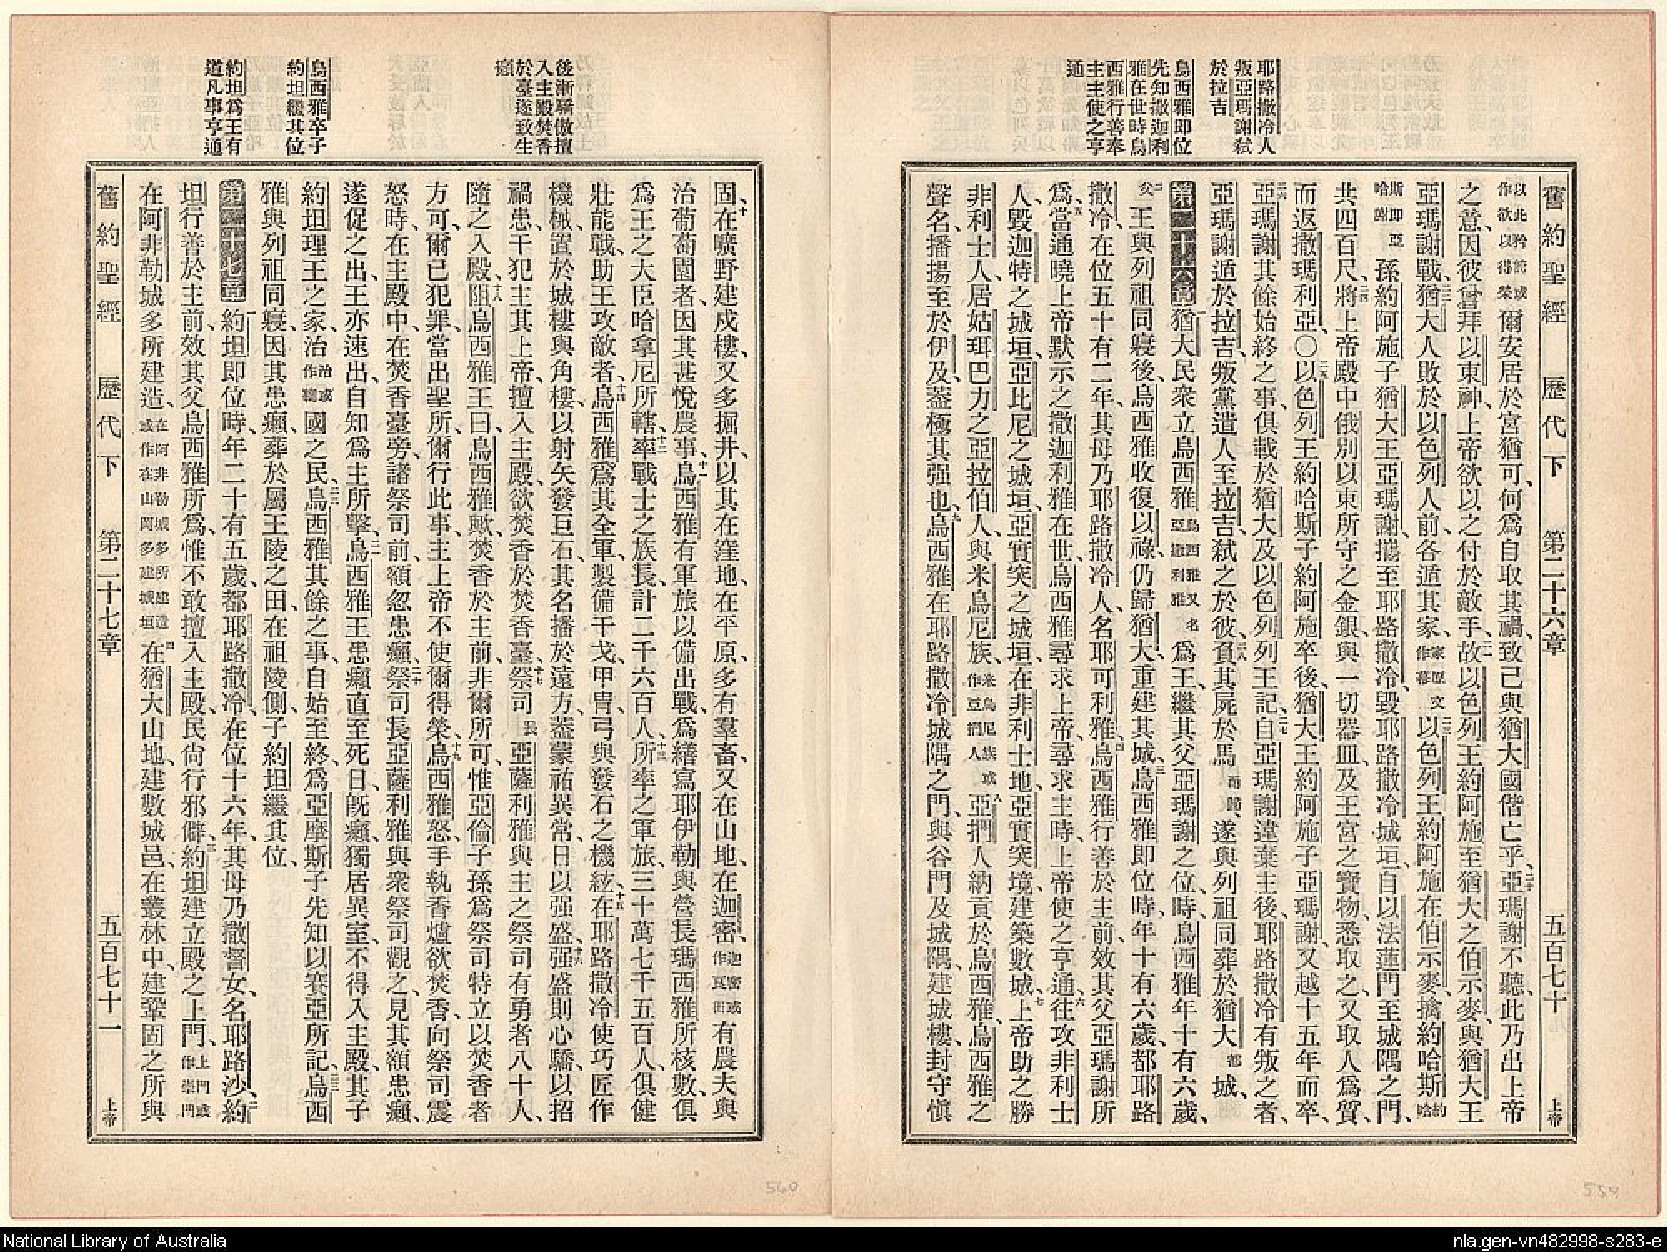 耶路撒冷人
叛亞瑪謝弒
於拉吉
烏西雅即位
先知撒迦利
雅在世時烏
西雅行善奉
主主使之亨
通
舊約聖經 歷代下 第二十六章 五百七十 上帝
以此矜誇或作欲以得榮爾安居於宮猶可、何爲自取其禍、致己與猶大國偕亡乎、二十亞瑪謝不聽、此乃出上帝
之意、因彼曾拜以東神、上帝欲以之付於敵手、二一故以色列王約阿施至猶大之伯示麥、與猶大王
亞瑪謝戰、二二猶大人敗於以色列人前、各遁其家、家原文作幕二三以色列王約阿施在伯示麥、擒約哈斯約哈
斯即亞哈謝孫約阿施子猶大王亞瑪謝、攜至耶路撒冷、毀耶路撒冷城垣、自以法蓮門至城隅之門、
共四百尺、二四將上帝殿中俄別以東所守之金銀、與一切器皿、及王宮之寶物、悉取之、又取人爲質、
而返撒瑪利亞、〇二五以色列王約哈斯子約阿施卒後、猶大王約阿施子亞瑪謝、又越十五年而卒、
二六亞瑪謝其餘始終之事、俱載於猶大及以色列列王記、二七自亞瑪謝違棄主後、耶路撒冷有叛之者、
亞瑪謝遁於拉吉、叛黨遣人至拉吉、弒之於彼、二八負其屍於馬、而歸遂與列祖同葬於猶大都城、
第二十六章一猶大民衆立烏西雅烏西雅又名亞撒利雅爲王、繼其父亞瑪謝之位、時烏西雅年十有六歲、
二王與列祖同寢後、烏西雅收復以祿、仍歸猶大、重建其城、三烏西雅即位時、年十有六歲、都耶路
撒冷、在位五十有二年、其母乃耶路撒冷人、名耶可利雅、四烏西雅行善於主前、效其父亞瑪謝所
爲、五當通曉上帝默示之撒迦利雅在世、烏西雅尋求上帝、尋求主時、上帝使之亨通、六往攻非利士
人、毀迦特之城垣、亞比尼之城垣、亞實突之城垣、在非利士地亞實突境、建築數城、七上帝助之勝
非利士人、居姑珥巴力之亞拉伯人、與米烏尼族、米烏尼族或作亞捫人八亞捫人納貢於烏西雅、烏西雅之
聲名、播揚至於伊及、蓋極其强也、九烏西雅在耶路撒冷城隅之門、與谷門及城隅、建城樓、封守愼
後漸驕傲擅
入主殿焚香
於臺遂致生
癩
烏西雅卒子
約坦繼其位
約坦爲王有
道凡事亨通
固、十在曠野建戍樓、又多掘井、以其在窪地、在平原、多有羣畜、又在山地、在迦密、迦密或作瓦田有農夫與
治葡萄園者、因其甚悅農事、十一烏西雅有軍旅以備出戰、爲繕寫耶伊勒與營長瑪西雅所核數、俱
爲王之大臣哈拿尼所轄、十二率戰士之族長、計二千六百人、十三所率之軍旅、三十萬七千五百人、俱健
壯能戰、助王攻敵者、十四烏西雅爲其全軍製備干戈甲冑弓、與發石之機絃、十五在耶路撒冷使巧匠作
機械、置於城樓與角樓、以射矢發巨石、其名播於遠方、蓋蒙祐異常、日以强盛、十六强盛則心驕、以招
禍患、干犯主其上帝、擅入主殿、欲焚香於焚香臺、十七祭司長亞薩利雅與主之祭司有勇者八十人、
隨之入殿、十八阻烏西雅王曰、烏西雅歟、焚香於主前、非爾所可、惟亞倫子孫爲祭司、特立以焚香者
方可、爾已犯罪、當出聖所、爾行此事、主上帝不使爾得榮、十九烏西雅怒、手執香爐欲焚香、向祭司震
怒時、在主殿中、在焚香臺旁、諸祭司前、額忽患癩、二十祭司長亞薩利雅與衆祭司觀之、見其額患癩、
遂促之出、王亦速出、自知爲主所擊、二一烏西雅王患癩直至死日、旣癩、獨居異室、不得入主殿、其子
約坦理王之家、治治或作鞫國之民、二二烏西雅其餘之事、自始至終、爲亞摩斯子先知以賽亞所記、二三烏西
雅與列祖同寢、因其患癩、葬於屬王陵之田、在祖陵側、子約坦繼其位
第二十七章一約坦即位時、年二十有五歲、都耶路撒冷、在位十六年、其母乃撒督女、名耶路沙、二約
坦行善於主前、效其父烏西雅所爲、惟不敢擅入主殿、民尙行邪僻、三約坦建立殿之上門、上門或作崇門
在阿非勒城多所建造、在阿非勒城多所建造或作在山岡多建城垣四在猶大山地、建數城邑、在叢林中、建鞏固之所與
舊約聖經 歷代下 第二十七章 五百七十一 上帝
560
559
National Library of Australia
nla.gen-vn482998-s283-e